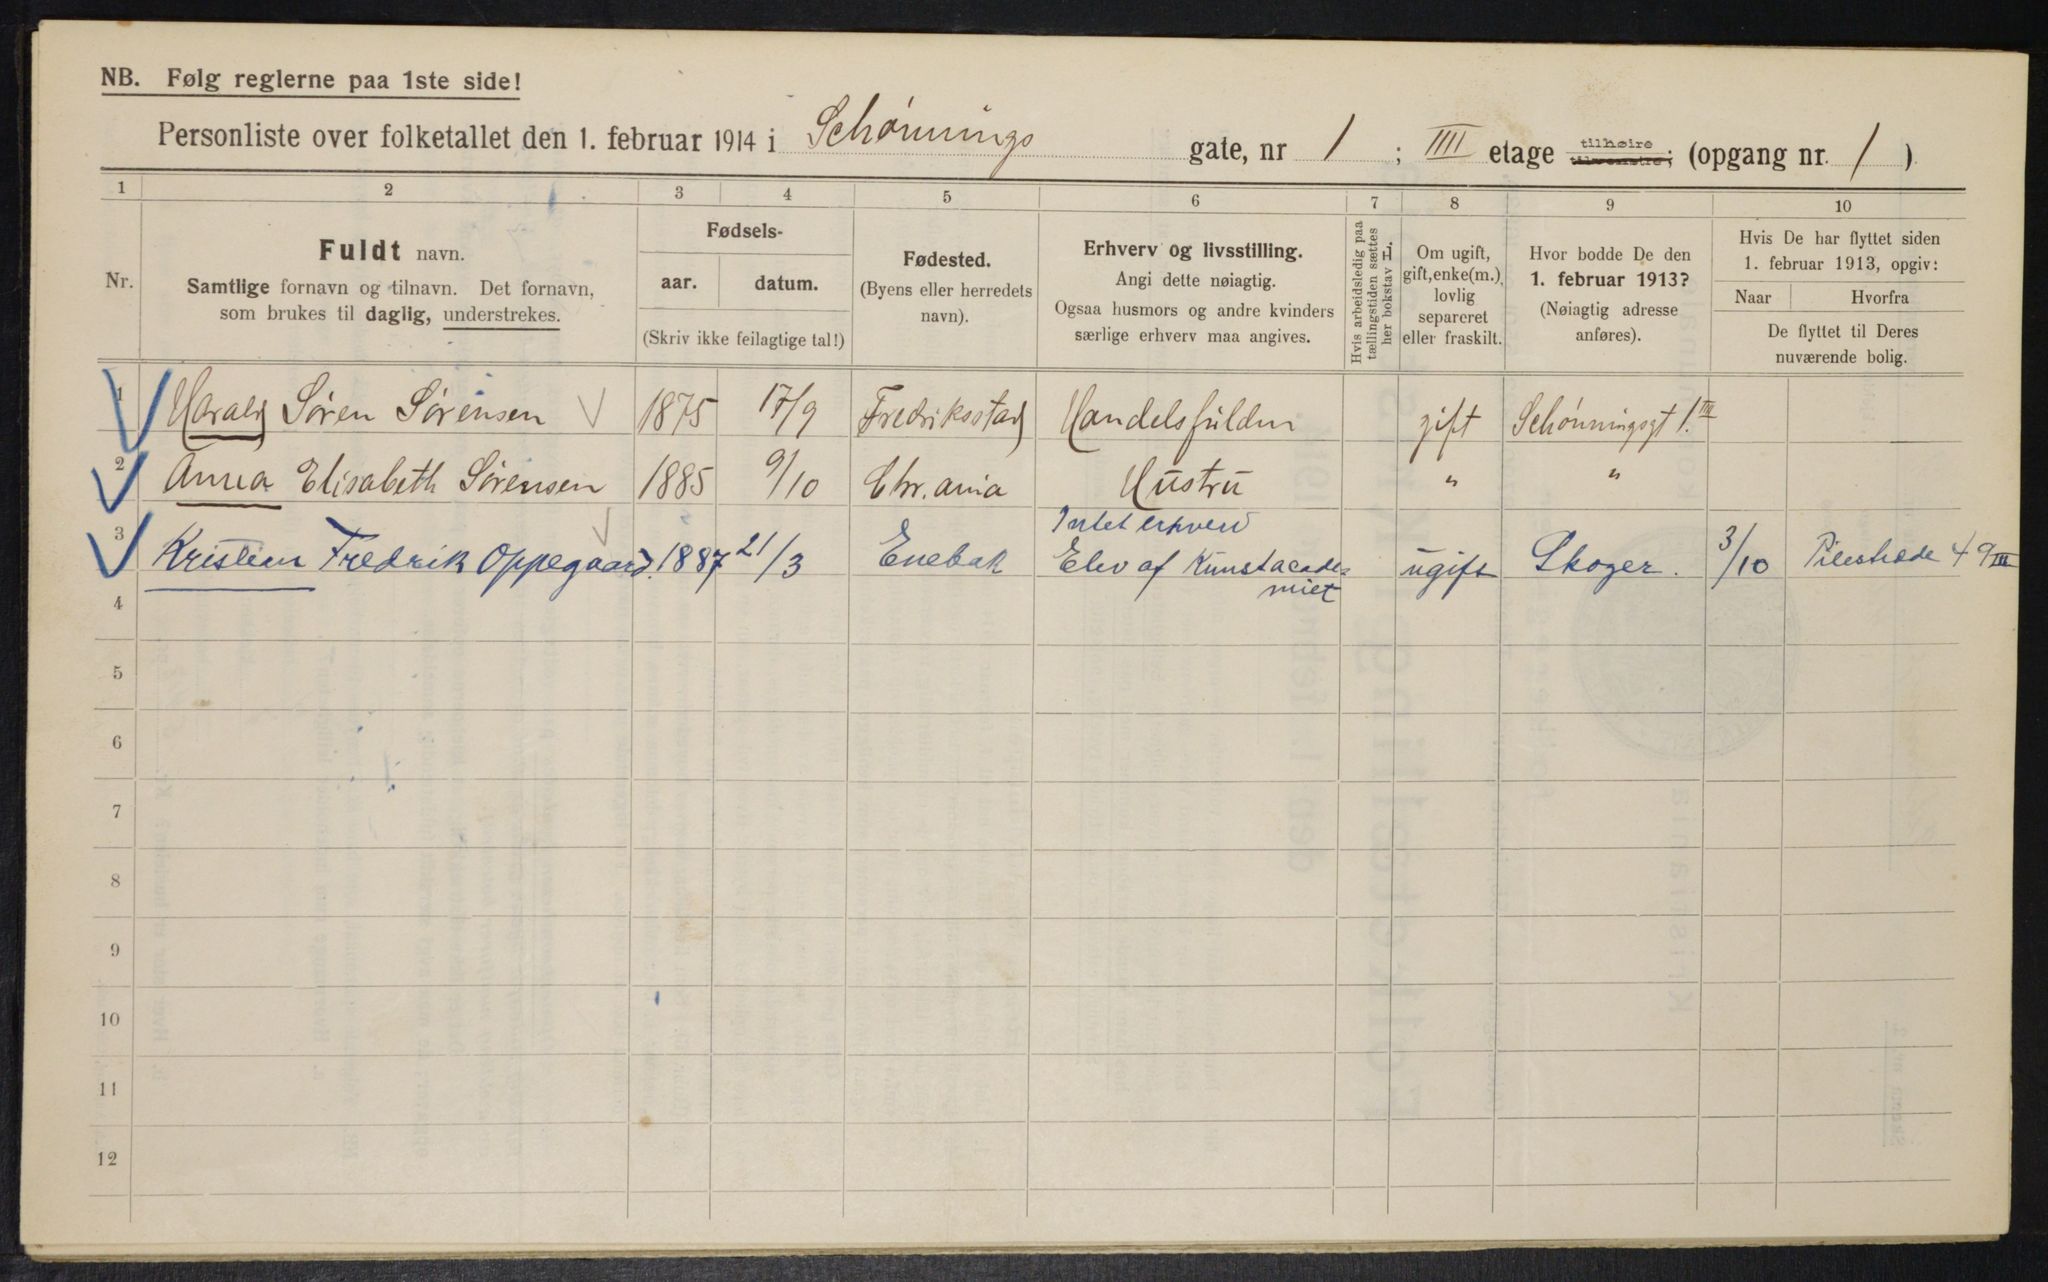 NB. Følg reglerne paa 1ste side!
Personliste over folketallet den 1. februar 1914 i Schønnings gate, nr 1 ; IIII etage tilhøire (opgang nr. 1 )
1 2 3 4 5 6 7 8 9 10
Nr.
Fuldt navn.
Samtlige fornavn og tilnavn. Det fornavn,
som brukes til daglig, understrekes.
Fødsels-
aar. datum.
(Skriv ikke feilagtige tal!)
Fødested.
(Byens eller herredets
navn).
Erhverv og livsstilling.
Angi dette nøiagtig.
Ogsaa husmors og andre kvinders
særlige erhverv maa angives.
Hvis arbeidsledig paa
tællingstiden sættes
her bokstav L.
Om ugift,
gift, enke(m.),
lovlig
separeret
eller fraskilt.
Hvor bodde De den
1. februar 1913?
(Nøiagtig adresse
anføres).
Hvis De har flyttet siden
1. februar 1913, opgiv:
Naar Hvorfra
De flyttet til Deres
nuværende bolig.
1 Harald Søren Sørensen 1875 17/9 Fredriksstad Handelsfuldm gift Schønningsgt 1. III
2 Anna Elisabeth Sørensen 1885 9/10 Chr.ania Hustru " "
Intet erhverv
3 Kristian Fredrik Oppegaard. 1887 21/3 Enebak Elev af Kunstacade- ugift Skoger. 3/10 Pilestræde 49 III
miet
4
5
6
7
8
9
10
11
12